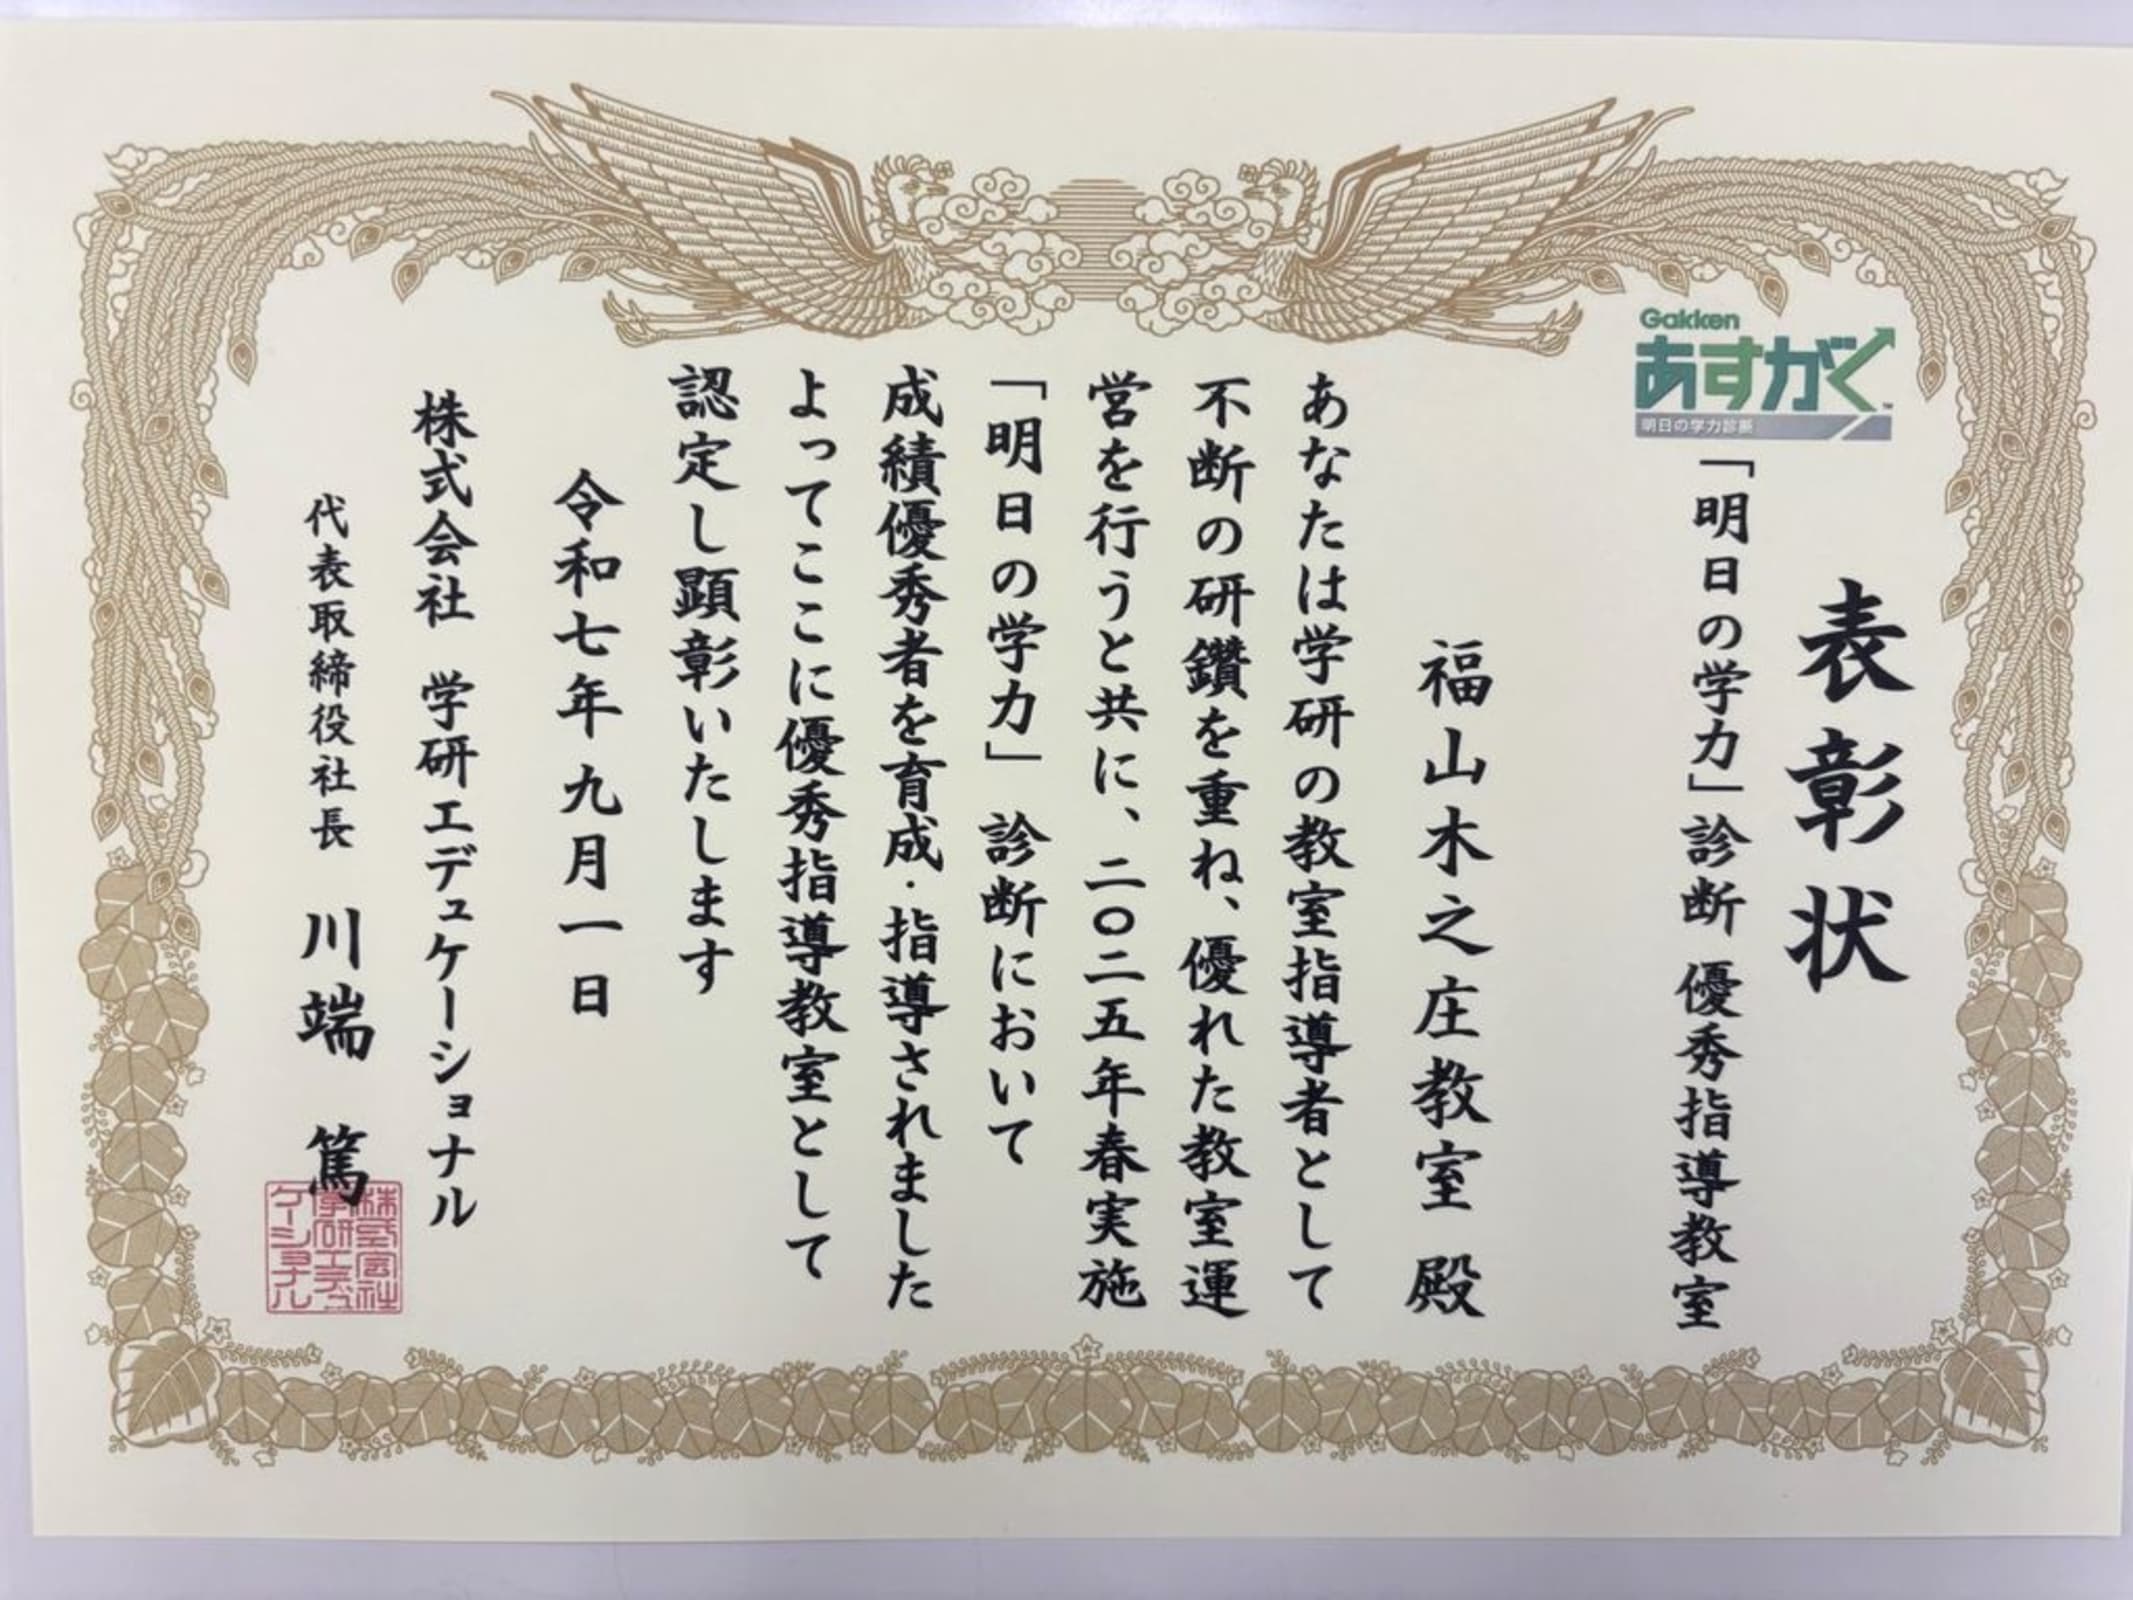 表彰状
Gakken
あすがく
明日の学力診断
「明日の学力」診断 優秀指導教室
福山木之庄教室 殿
あなたは学研の教室指導者として
不断の研鑽を重ね、優れた教室運
営を行うと共に、二〇二五年春実施
「明日の学力」診断において
成績優秀者を育成・指導されました
よってここに優秀指導教室として
認定し顕彰いたします
令和七年九月一日
株式会社 学研エデュケーショナル
代表取締役社長 川端 篤
株式会社
学研エデュ
ケーショナル